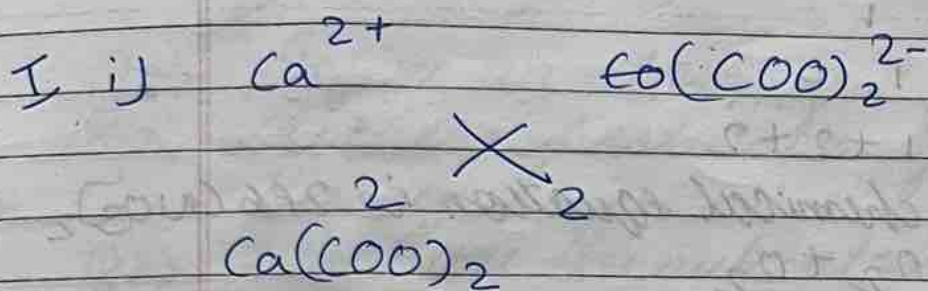 I i) Ca²⁺ (COO)₂²⁻
2 2
Ca(COO)₂